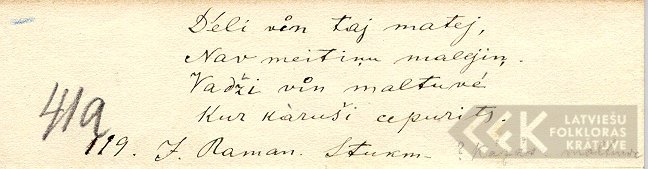 Dēli vån taj matej,
Nav meitiņu malējiņ.
Vadži vån maltuvē
Kur kàruši cepurits.
419
119. J. Raman. Stukm.
LATVIEŠU
FOLKLORAS
KRĀTUVE